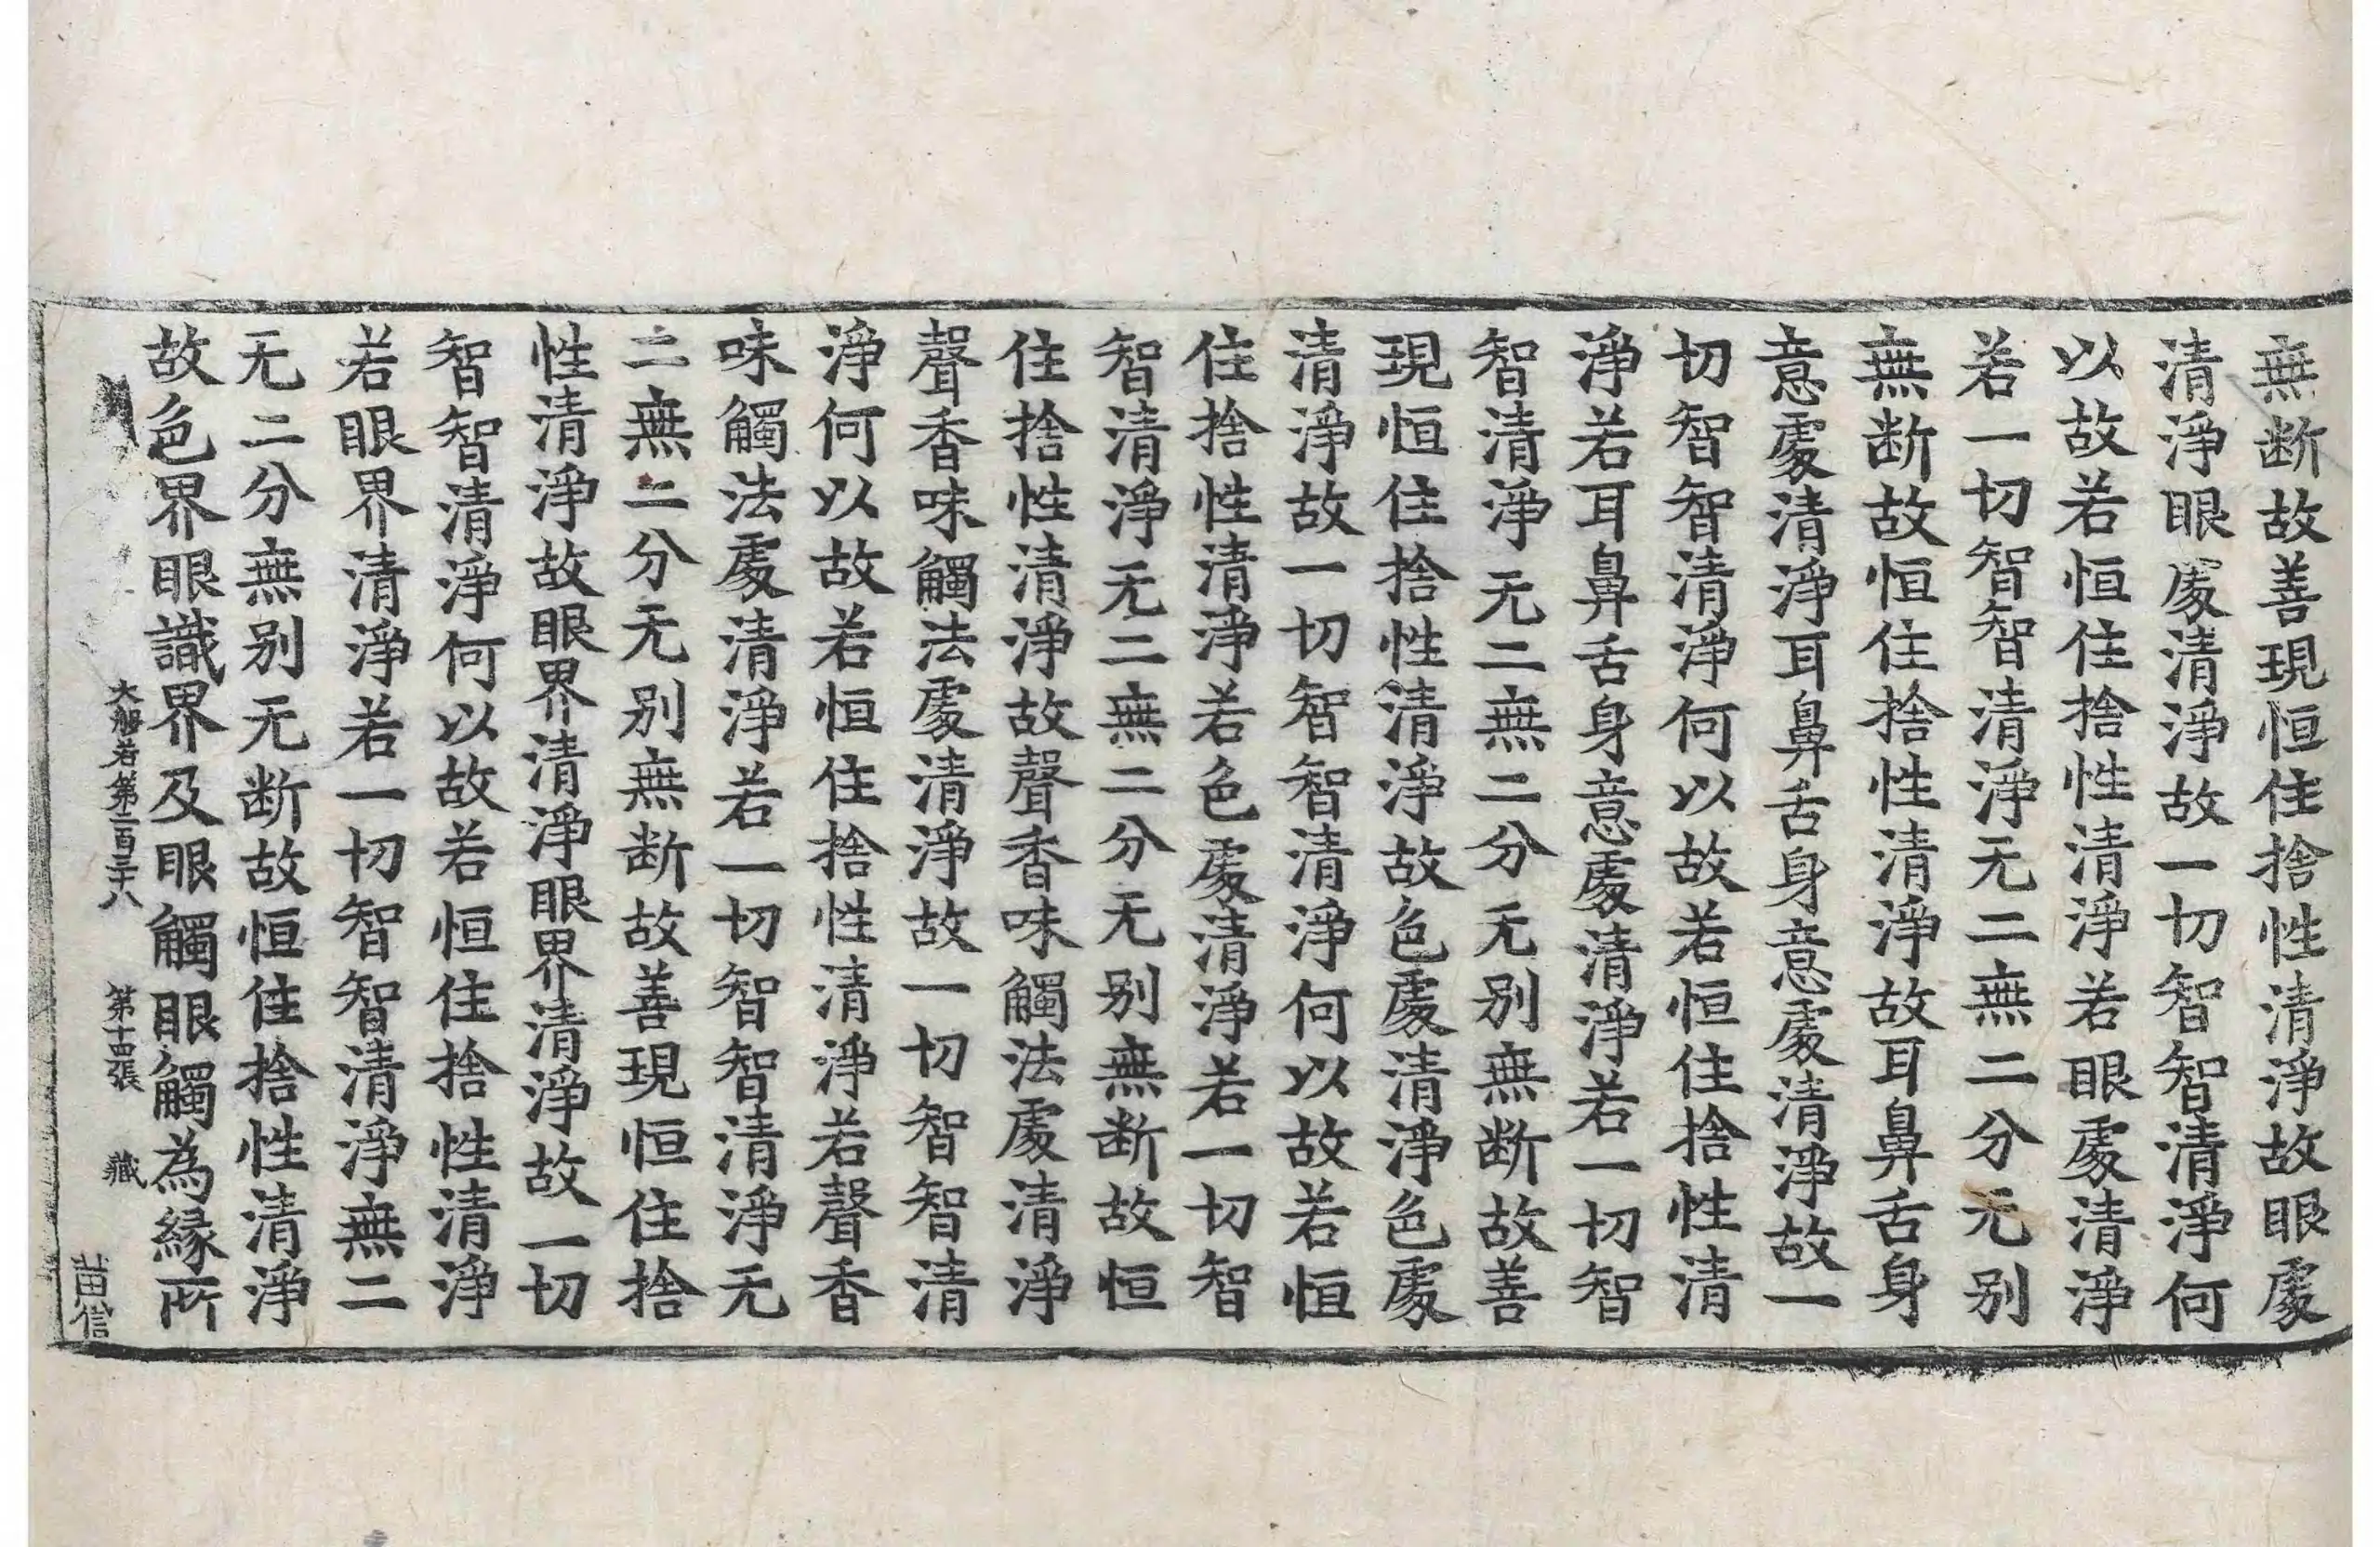 無断故善現恒住捨性清淨故眼處
清淨眼處清淨故一切智智清淨何
以故若恒住捨性清淨若眼處清淨
若一切智智清淨无二無二分无别
無断故恒住捨性清淨故耳鼻舌身
意處清淨耳鼻舌身意處清淨故一
切智智清淨何以故若恒住捨性清
淨若耳鼻舌身意處清淨若一切智
智清淨无二無二分无别無断故善
現恒住捨性清淨故色處清淨色處
清淨故一切智智清淨何以故若恒
住捨性清淨若色處清淨若一切智
智清淨无二無二分无别無断故恒
住捨性清淨故聲香味觸法處清淨
聲香味觸法處清淨故一切智智清
淨何以故若恒住捨性清淨若聲香
味觸法處清淨若一切智智清淨无
二無二分无别無断故善現恒住捨
性清淨故眼界清淨眼界清淨故一切
智智清淨何以故若恒住捨性清淨
若眼界清淨若一切智智清淨無二
无二分無别无断故恒住捨性清淨
故色界眼識界及眼觸眼觸為緣所
大般若第二百三十八 第十四張 藏